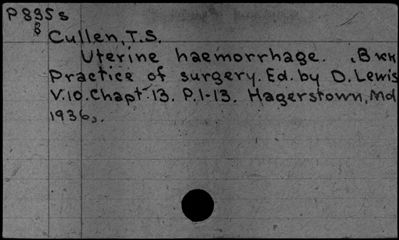 P895s
8
Cullen, T.S.
Uterine haemorrhage. , B кн
Practice of surgery. Ed. by D. Lewis
V.10. Chapt. 13. P.1-13. Hagerstown, Md
1936,.